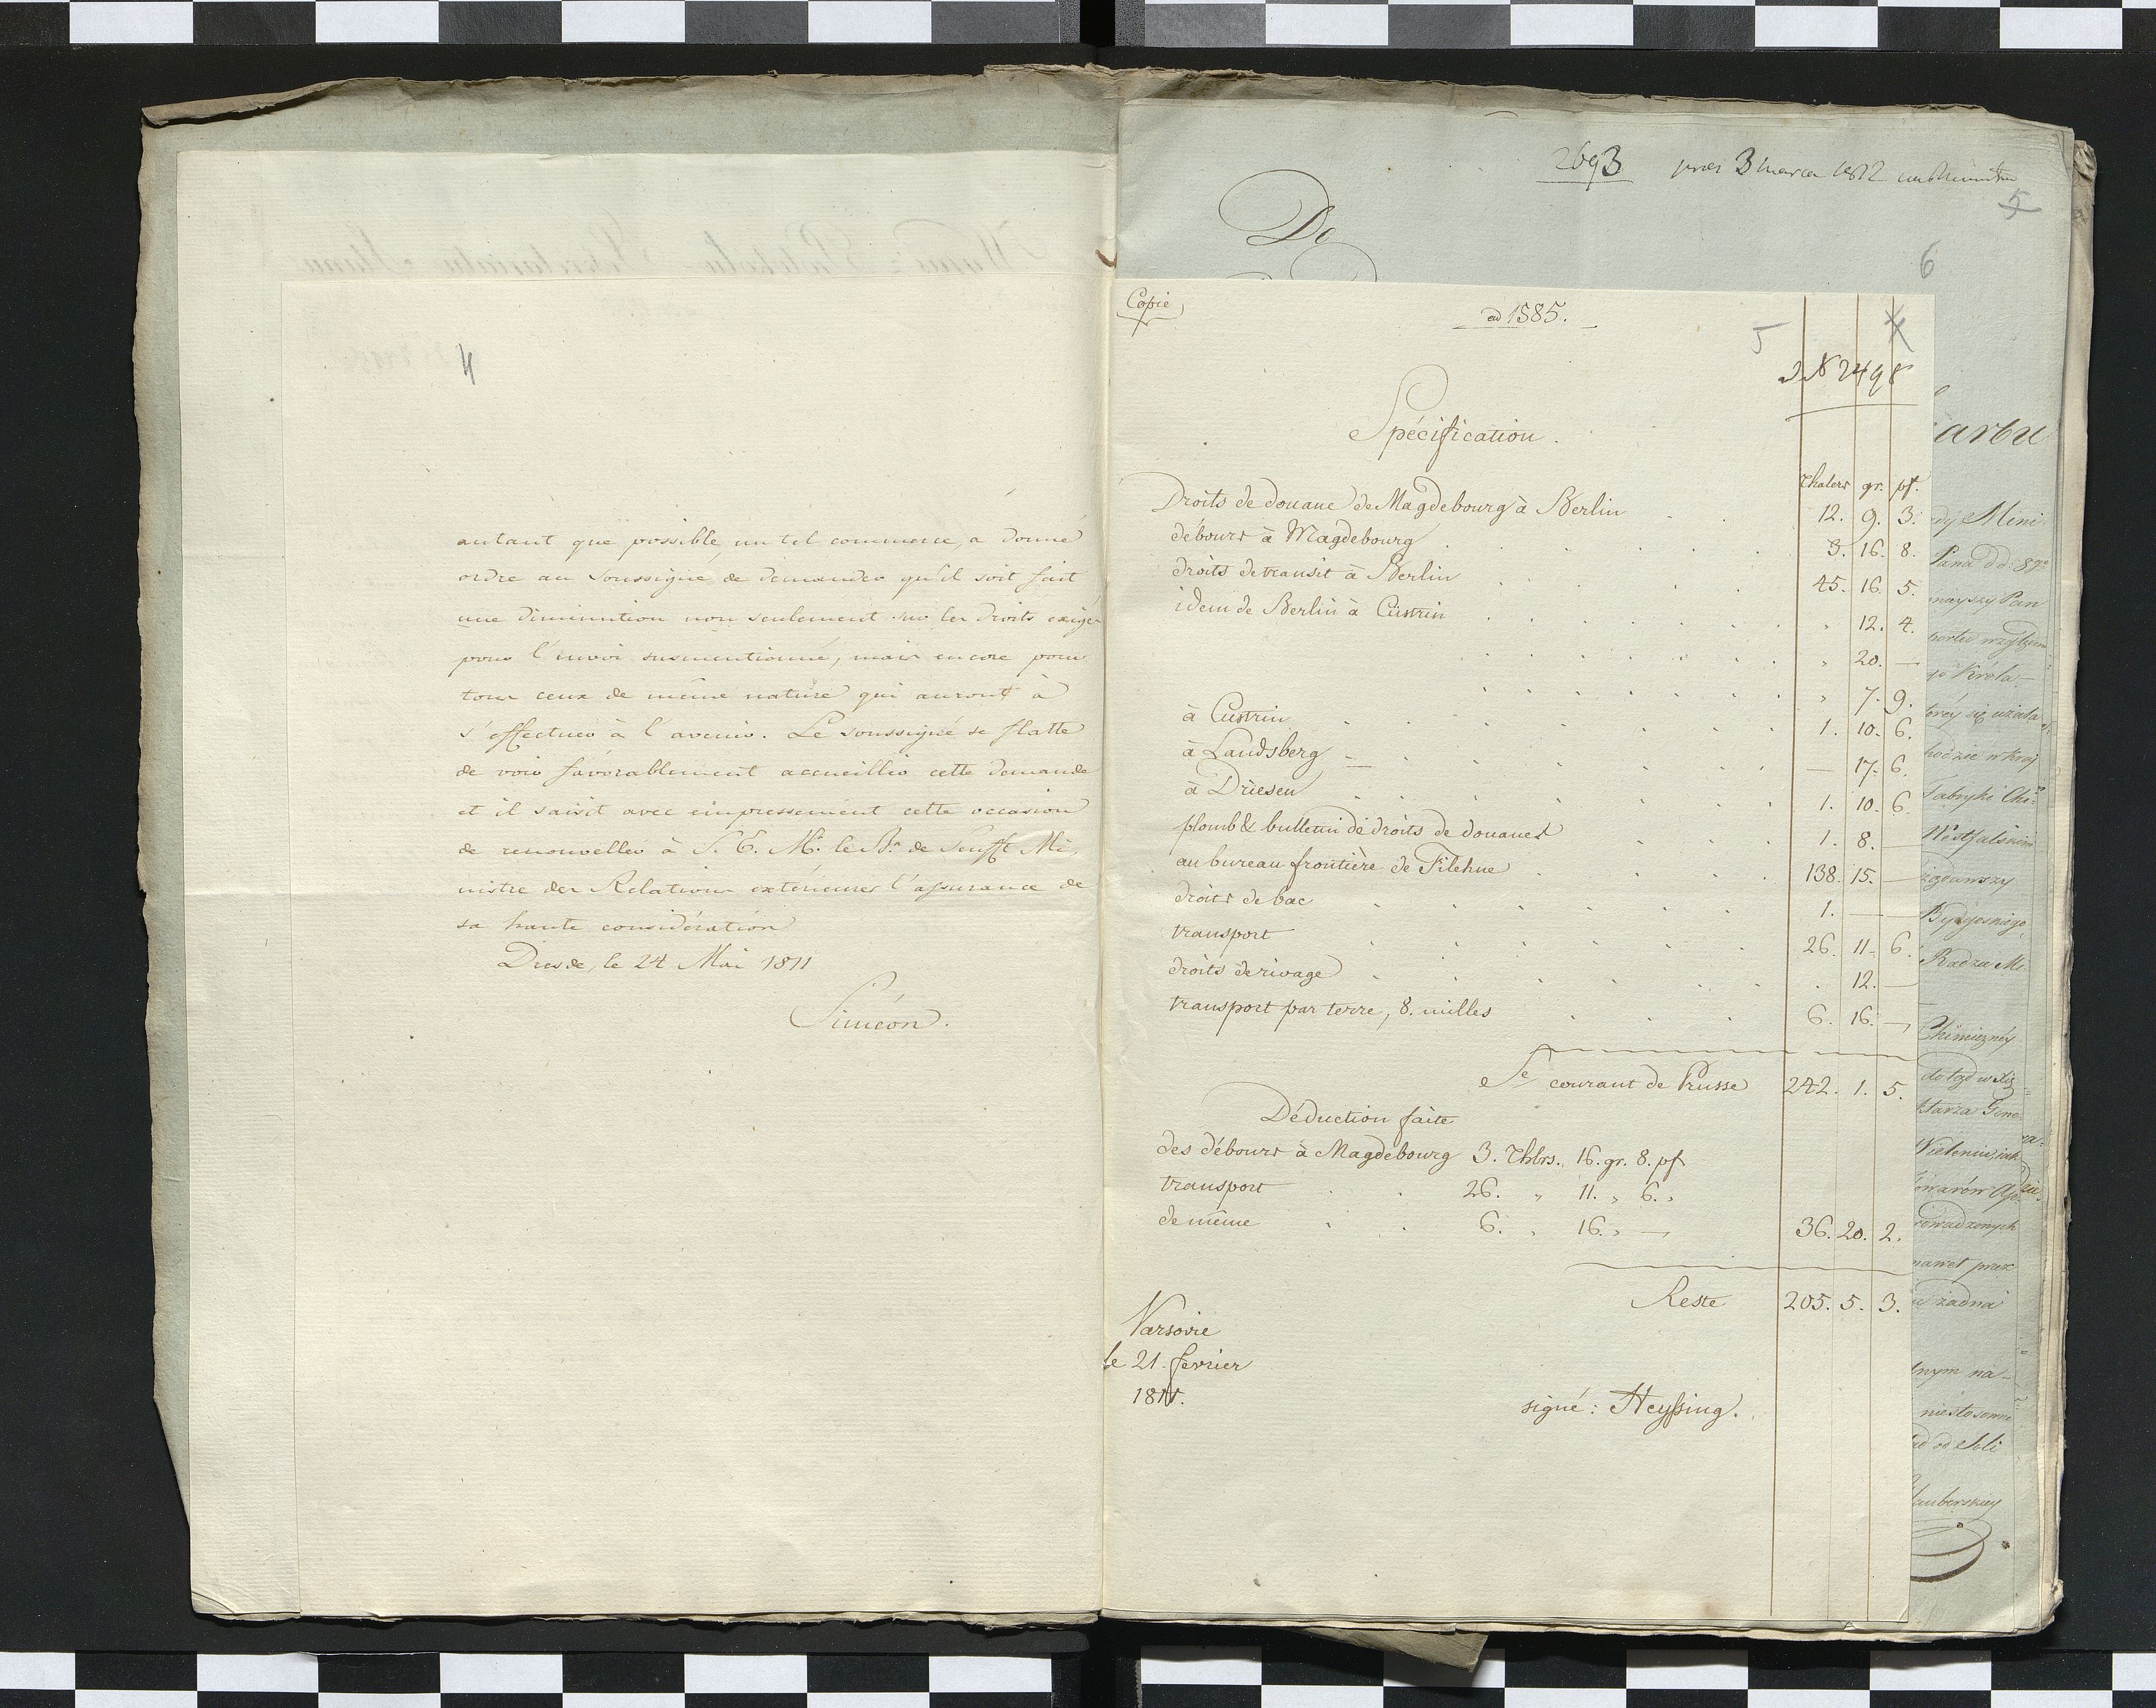 4
autant que possible, un tel commerce, a donné
ordre au Soussigné de demander qu'il soit fait
une diminution non seulement sur les droits exigés
pour l'envoi susmentionné, mais encore pour
tous ceux de même nature qui auront à
s'effectuer à l'avenir. Le soussigné se flatte
de voir favorablement accueillir cette demande
et il saisit avec empressement cette occasion
de renouveller à S. E. Mr. le Bn. de Senfft Mi-
nistre des Relations extérieures l'assurance de
sa haute considération
Dresde, le 24 Mai 1811
Siméon.
2693 3 marca 1812
5
Do
6
Copie
ad 1585.
5
ad N 2498
Spécification.
Thalers gr. pf.
Droits de douane de Magdebourg à Berlin 12. 9. 3.
débours à Magdebourg 3. 16. 8.
droits de transit à Berlin 45. 16. 5.
idem de Berlin à Cüstrin " 12. 4.
" 20. —
" 7. 9.
à Custrin 1. 10. 6.
à Landsberg — 17. 6.
à Driesen 1. 10. 6.
plomb & bulletin de droits de douanes 1. 8. —
au bureau frontière de Filehne 138. 15. —
droits de bac 1. — —
transport 26. 11. 6.
droits de rivage . 12. —
transport par terre, 8. milles 6. 16. —
Se courant de Prusse 242. 1. 5.
Déduction faite
des débours à Magdebourg 3. Thlrs. 16. gr. 8. pf
transport 26. " 11. " 6. "
de même 6. " 16. " — 36. 20. 2.
Reste 205. 5. 3.
Varsovie
le 21. fevrier
1811.
signé: Heyssing.
arbu
Mini
Pana d d: 87
nayszy Pan
go Króla
torey się użala
Fabryki Che
Westfalskim
Bydgoskiego,
Radza Mi
Chemiczney
tarza Gene
ra-
towarów Ap
rowadzonych
nawet prze
żadna
lnym na-
niestosowne
lauberskiey